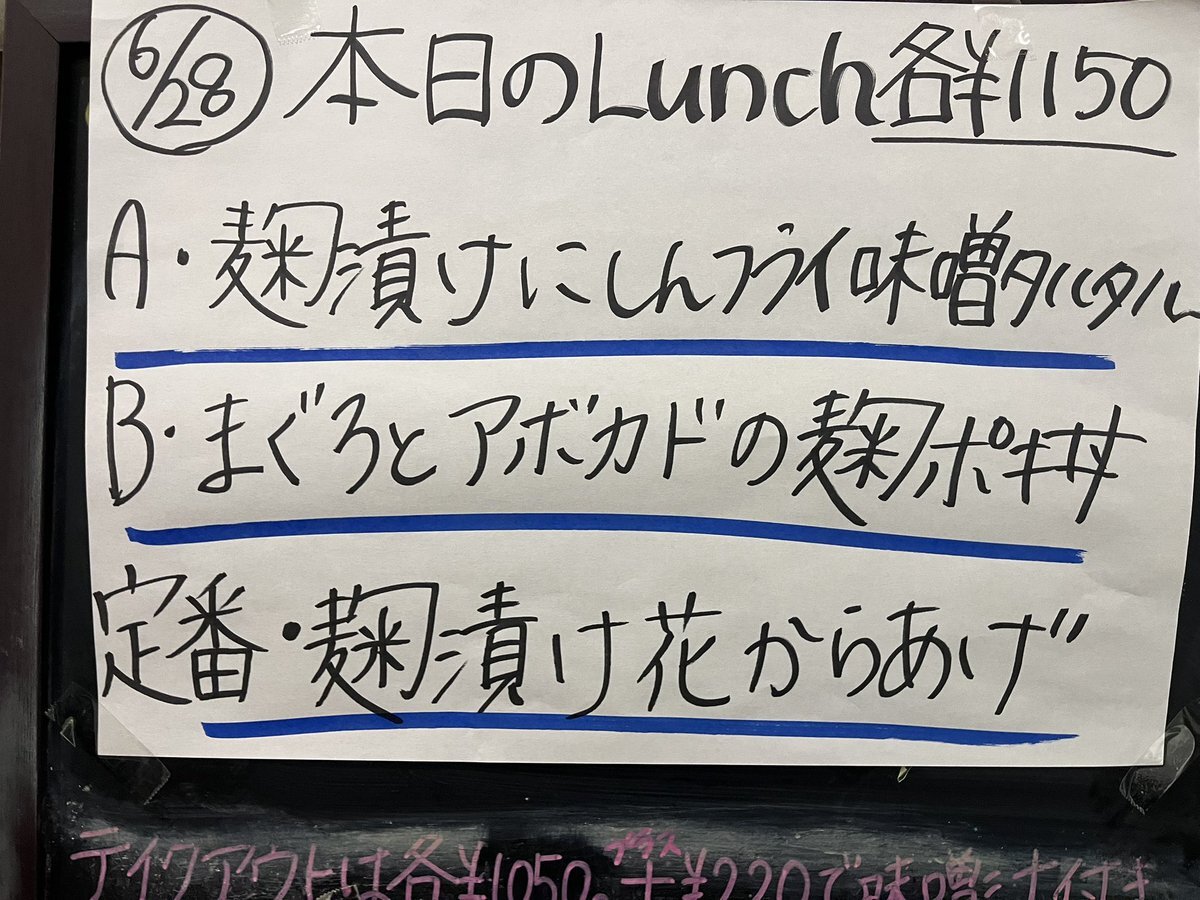 6/28 本日のLunch各¥1150
A・麹漬けにしんフライ味噌タルタル
B・まぐろとアボカドの麹ポキ丼
定番・麹漬け花からあげ
テイクアウトは各¥1050。プラス+¥220で味噌汁付き